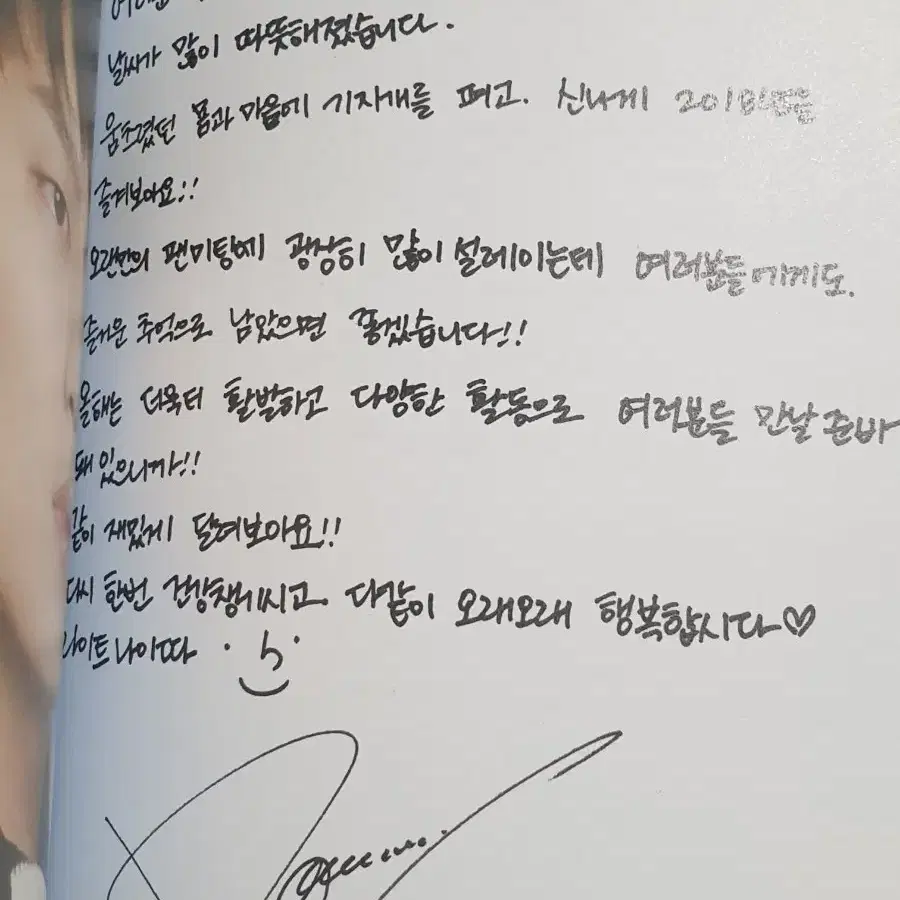 날씨가 많이 따뜻해졌습니다.
움츠렸던 몸과 마음에 기지개를 펴고. 신나게 2018년은
즐겨보아요!!
오랜만의 팬미팅에 굉장히 많이 설레이는데 여러분들에게도.
즐거운 추억으로 남았으면 좋겠습니다!!
올해는 더욱더 활발하고 다양한 활동으로 여러분들 만날 준비
돼있으니까!!
같이 재밌게 달려보아요!!
다시 한번 건강챙기시고. 다같이 오래오래 행복합시다♡
나이트나이따